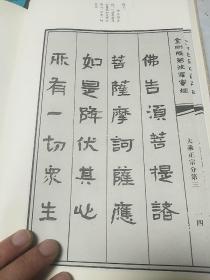 金剛般若波羅蜜經
大乘正宗分第三
四
佛告須菩提諸
菩薩摩訶薩應
如是降伏其心
所有一切眾生